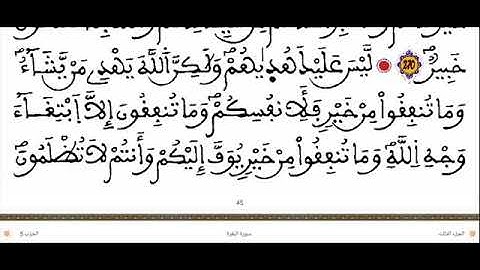 خَبِيرٌ 270 لَّيْسَ عَلَيْكَ هُدَيٰهُمْ وَلَٰكِنَّ اَ۬للَّهَ يَهْدِے مَنْ يَّشَآءُ
وَمَا تُنفِقُواْ مِنْ خَيْرٖ فَلِأَنفُسِكُمْ وَمَا تُنفِقُونَ إِلَّا اَ۪بْتِغَآءَ
وَجْهِ اِ۬للَّهِ وَمَا تُنفِقُواْ مِنْ خَيْرٖ يُوَفَّ إِلَيْكُمْ وَأَنتُمْ لَا تُظْلَمُونَ
45
الجزء الثالث سورة البقرة الحزب 5